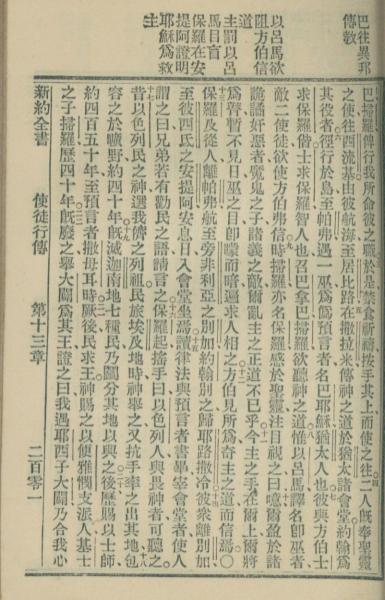 巴往異邦
傳教
以呂馬欲
阻方伯信
道
主罰以呂
馬目盲
保羅在安
提阿證明
耶穌爲救
主
巴掃羅傳行我所命彼之職於是禁食祈禱按手其上而使之往二人旣奉聖靈
之使往西流基由彼航海至居比路在撒拉米傳神之道於猶太諸會堂約翰爲
其役者徑行於島至帕弗遇一巫爲僞預言者名巴耶穌猶太人也彼與方伯士
求保羅偕士求保羅智人也召巴拿巴掃羅欲聽神之道惟以呂馬譯名卽巫者
敵二使徒欲使方伯弗信時掃羅亦名保羅感於聖靈注目視之曰噫爾盈於諸
詭譎奸慝者魔鬼之子諸義之敵爾亂主之正道不已乎今主之手在爾上爾將
爲瞽暫不見日巫之目卽矇而暗遍求人相之方伯見所爲奇主之道而信焉〇
保羅及從人離帕弗航至旁非利亞之別加約翰別之歸耶路撒冷彼衆離別加
至彼西氐之安提阿安息日入會堂坐焉讀律法與預言者書畢宰會堂者使人
謂之曰兄弟若有勸民之語請言之保羅起搖手曰以色列人與畏神者可聽之
昔以色列民之神選我儕之列祖民旅埃及地時神舉之又抗手率之出其地包
容之於曠野約四十年旣滅迦南地七種民乃鬮分其地以與之後歷賜以士師
約四百五十年至預言者撒母耳時厥後民求王神賜之以便雅憫支派人基士
之子掃羅歷四十年旣廢之舉大闢爲其王證之曰我遇耶西子大闢乃合我心
新約全書　使徒行傳　第十三章　二百零一